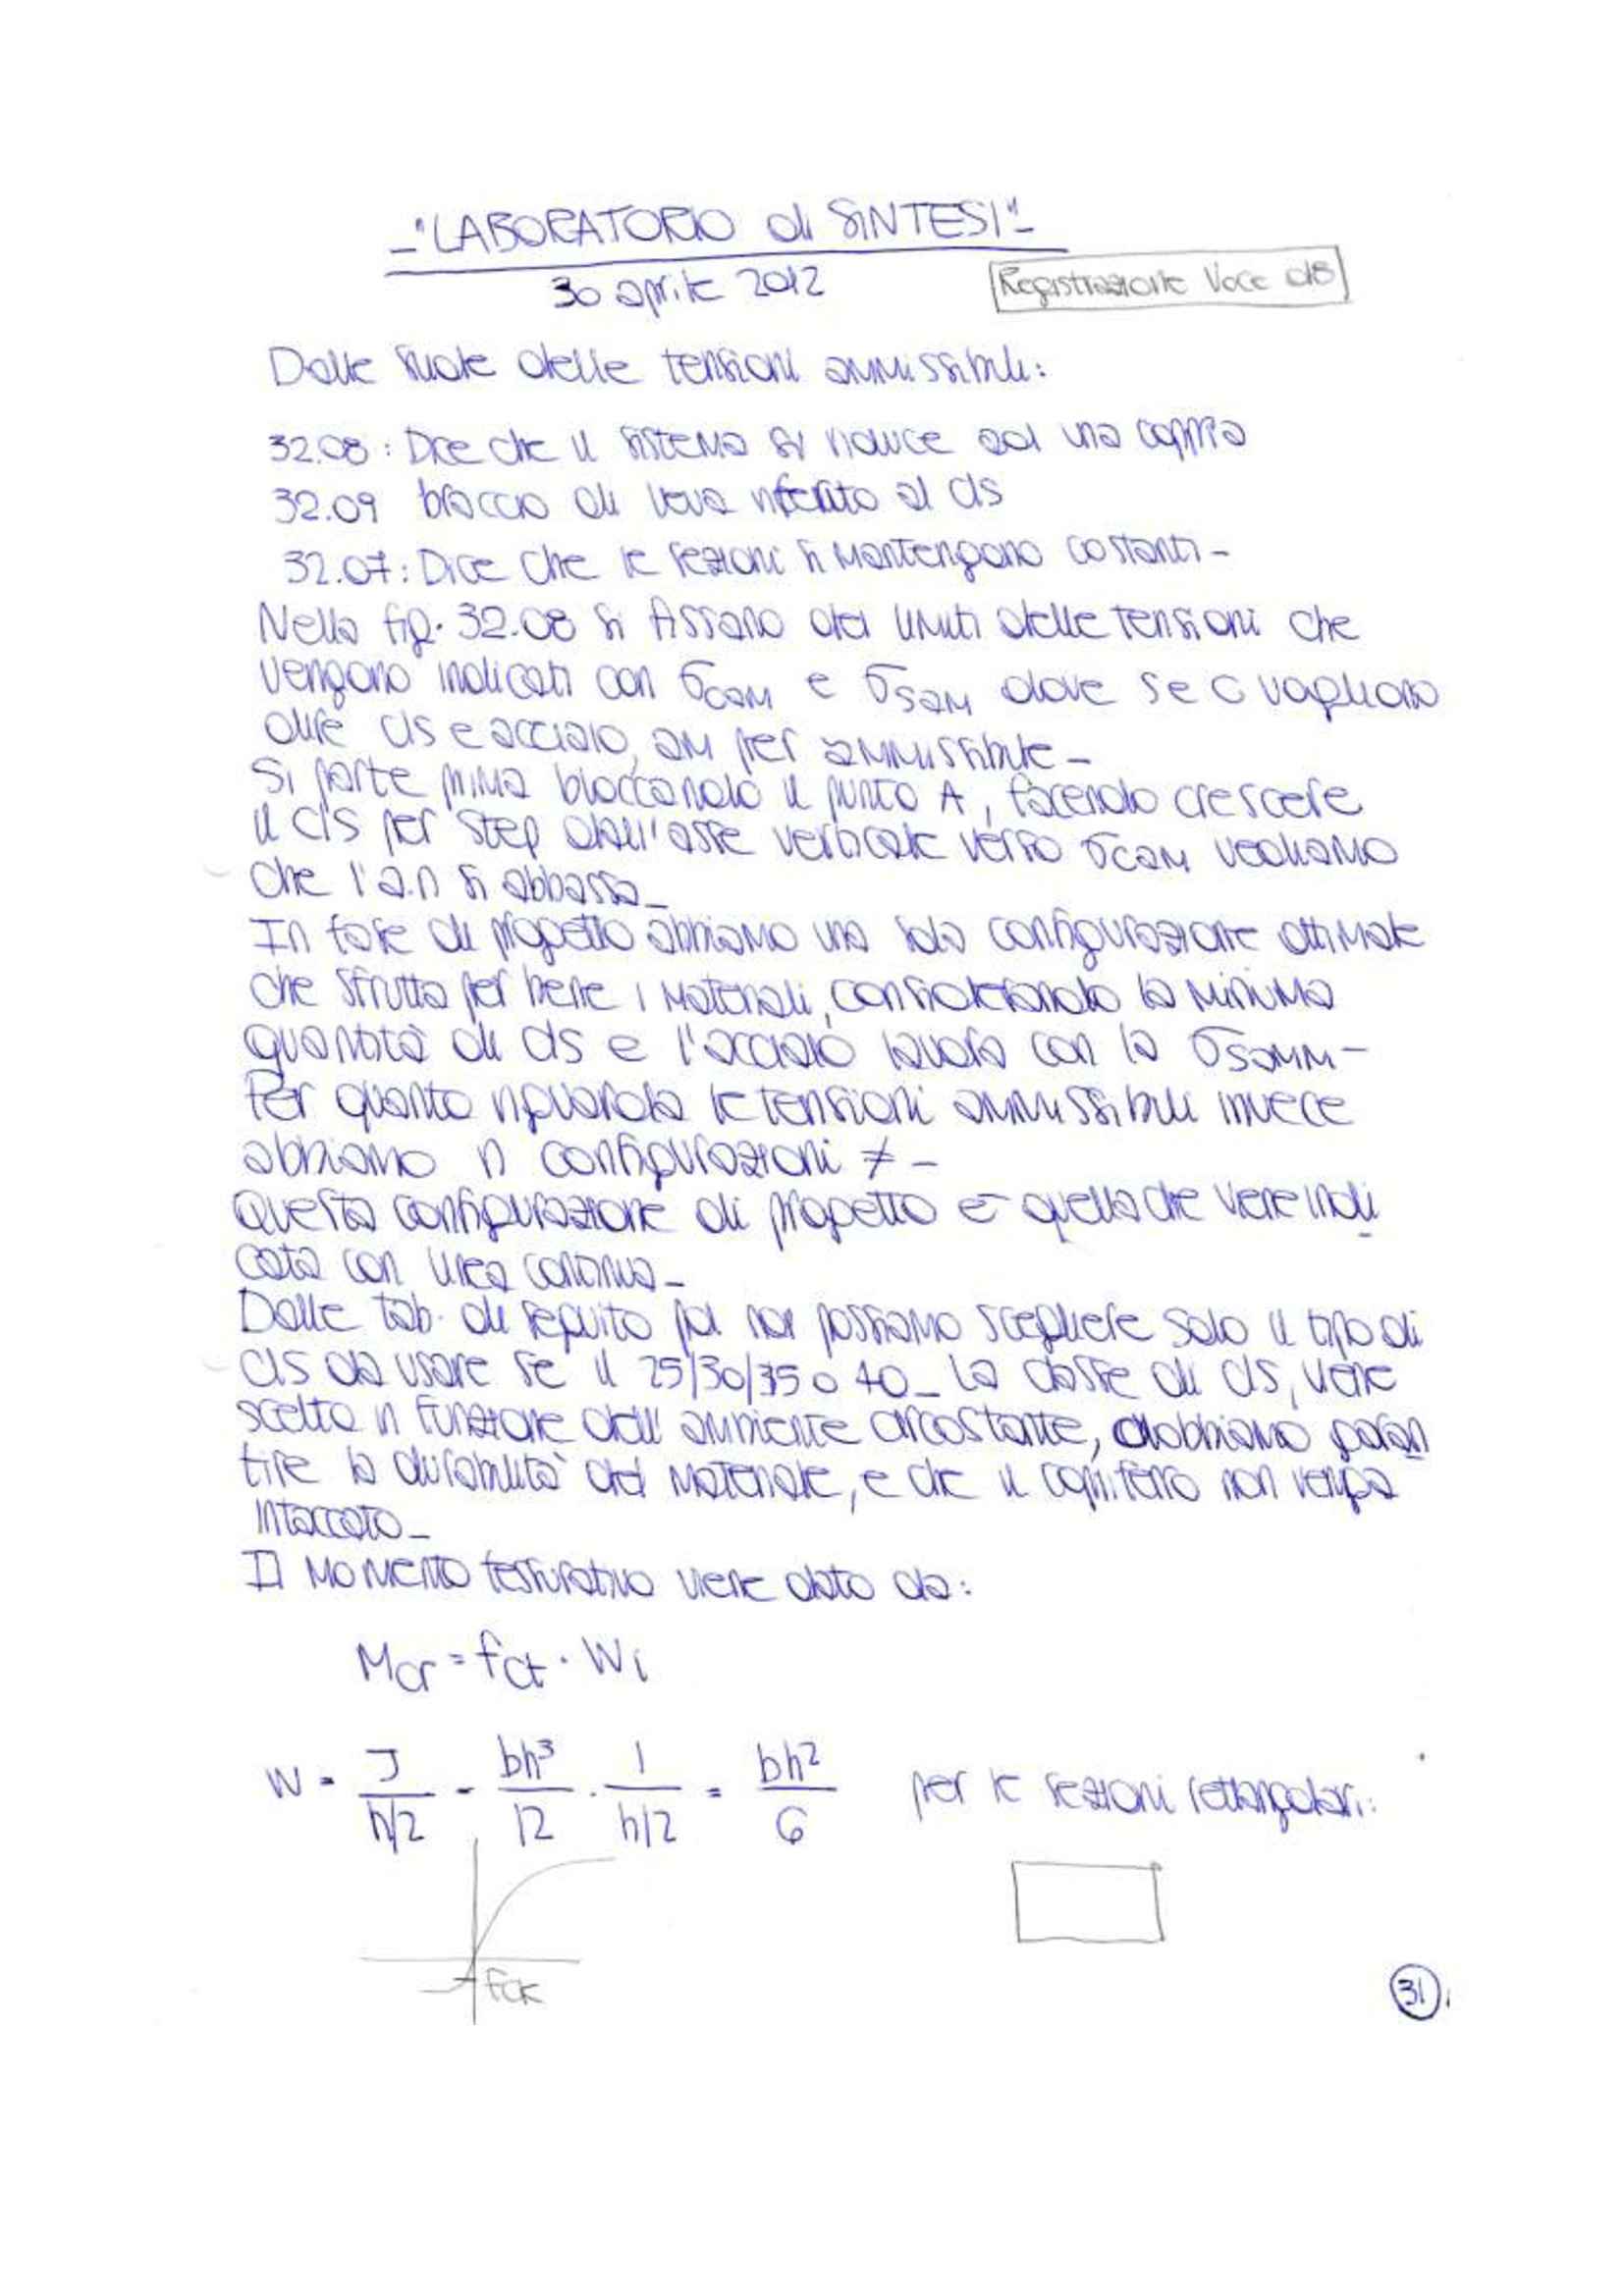 -"LABORATORIO di SINTESI"-
30 aprile 2012
Registrazione Voce 018
Dalle slide delle tensioni ammissibili:
32.08: Dice che il sistema si riduce ad una coppia
32.09 braccio di leva riferito al cls
32.07: Dice che le sezioni si mantengono costanti-
Nella fig. 32.08 si fissano dei limiti delle tensioni che
vengono indicati con σcam e σsam dove s e c vogliono
dire cls e acciaio, am per ammissibile-
Si parte prima bloccando il punto A, facendo crescere
il cls per step dall'asse verticale verso σcam vediamo
che l'a.n si abbassa-
In fase di progetto abbiamo una sola configurazione ottimale
che sfrutta per bene i materiali, considerando la minima
quantità di cls e l'acciaio lavora con la σsamm-
Per quanto riguarda le tensioni ammissibili invece
abbiamo n configurazioni ≠-
Questa configurazione di progetto è quella che viene indi
cata con linea continua-
Dalle tab. di seguito poi noi possiamo scegliere solo il tipo di
cls da usare se il 25/30/35 o 40- La classe di cls, viene
scelta in funzione dell'ambiente circostante, dobbiamo garan
tire la durabilità del materiale, e che il copriferro non venga
intaccato-
Il momento fessurativo viene dato da:
Mcr = fct · Wi
W = J/(h/2) = bh³/12 · 1/(h/2) = bh²/6 per le sezioni rettangolari:
fck
31